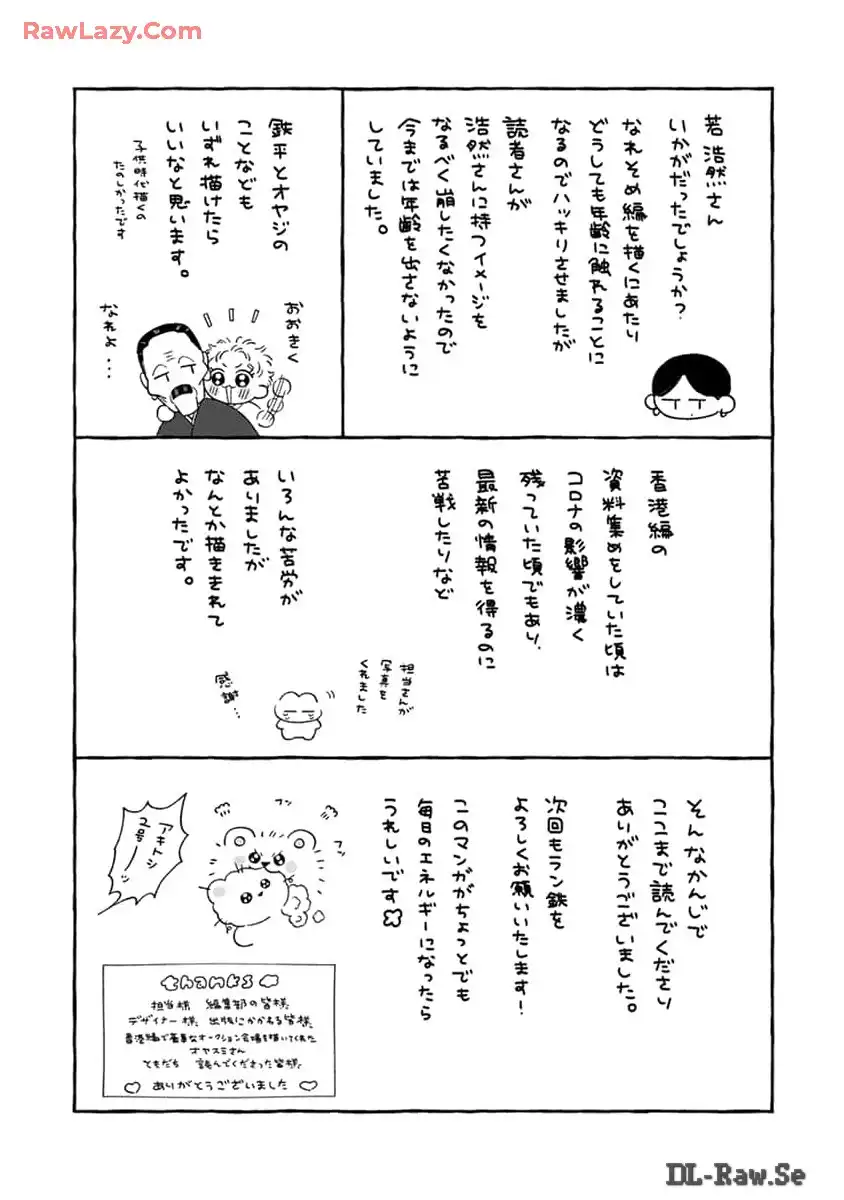 RawLazy.Com
若 浩然さん
いかがだったでしょうか?
なれそめ編を描くにあたり
どうしても年齢に触れることに
なるのでハッキリさせましたが
読者さんが
浩然さんに持つイメージを
なるべく崩したくなかったので
今までは年齢を出さないように
していました。
鉄平とオヤジの
ことなども
いずれ描けたら
いいなと思います。
子供時代描くの
たのしかったです
おおきく
なれよ・・・
香港編の
資料集めをしていた頃は
コロナの影響が濃く
残っていた頃でもあり、
最新の情報を得るのに
苦戦したりなど
いろんな苦労が
ありましたが
なんとか描ききれて
よかったです。
担当さんが
写真を
くれました
感謝…
そんなかんじで
ここまで読んでくださり
ありがとうございました。
次回もラン鉄を
よろしくお願いいたします!
このマンガがちょっとでも
毎日のエネルギーになったら
うれしいです
フン
フン
アキトシ
2号ーッ
thanks
担当様 編集部の皆様
デザイナー様 出版にかかわる皆様
香港編で素事なオークション会場を描いてくれた
オヤスミさん
ともだち 読んでくださった皆様
ありがとうございました
DL-Raw.Se